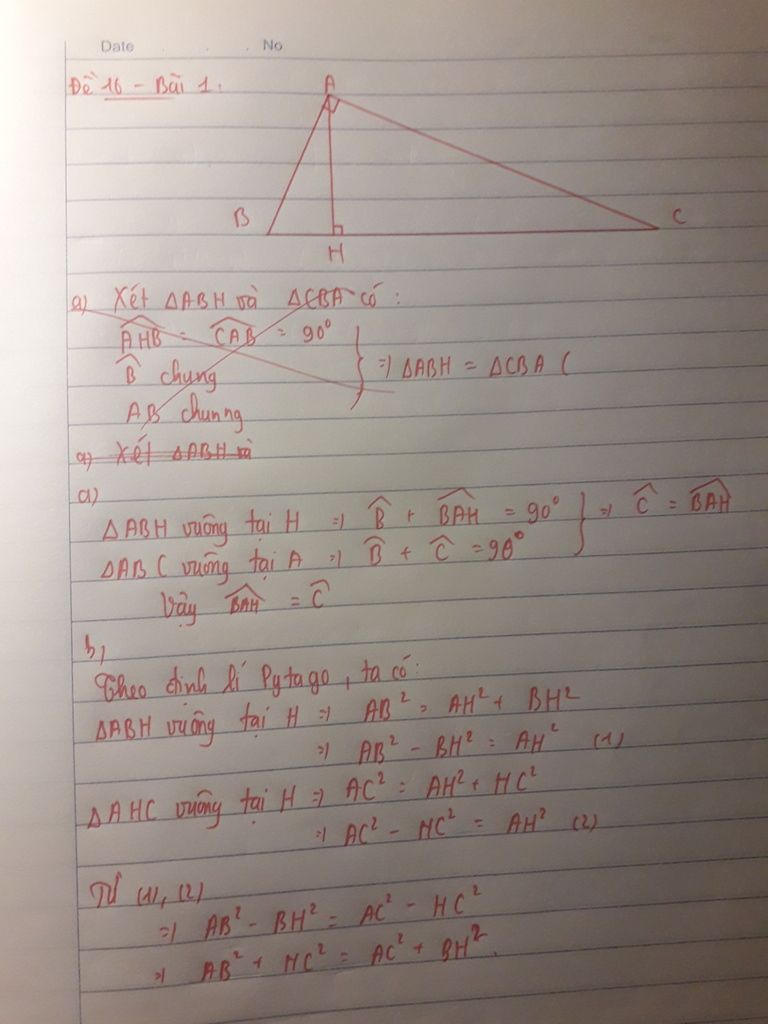 Date . . . No
Đề 16 - Bài 1:
A
B
C
H
a) Xét ΔABH và ΔCBA có:
\widehat{AHB} = \widehat{CAB} = 90°
\widehat{B} chung
AB chunng
} => ΔABH = ΔCBA (
a) Xét ΔABH và
a)
ΔABH vuông tại H => \widehat{B} + \widehat{BAH} = 90°
ΔABC vuông tại A => \widehat{B} + \widehat{C} = 90°
} => \widehat{C} = \widehat{BAH}
Vậy \widehat{BAH} = \widehat{C}
b,
Theo định lí Pytago, ta có:
ΔABH vuông tại H => AB² = AH² + BH²
=> AB² - BH² = AH² (1)
ΔAHC vuông tại H => AC² = AH² + HC²
=> AC² - HC² = AH² (2)
Từ (1), (2)
=> AB² - BH² = AC² - HC²
=> AB² + HC² = AC² + BH².